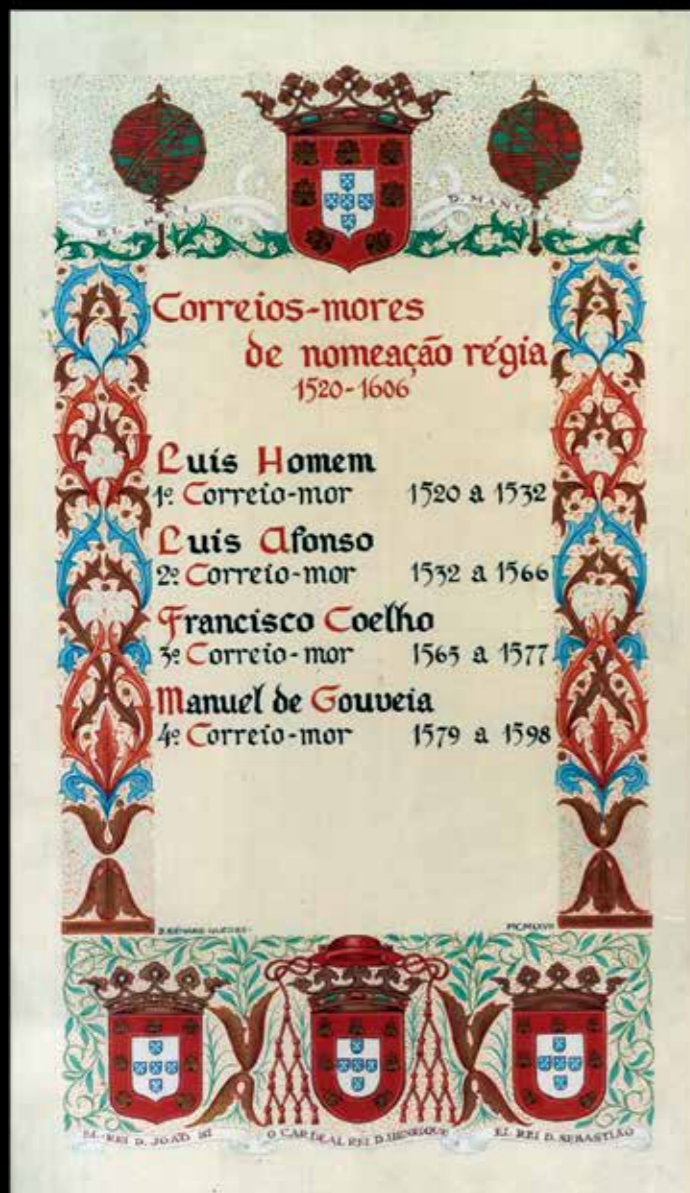 EL-REI D. MANUEL I
Correios-mores
de nomeação régia
1520-1606
Luís Homem
1º Correio-mor 1520 a 1532
Luís Afonso
2º Correio-mor 1532 a 1566
Francisco Coelho
3º Correio-mor 1565 a 1577
Manuel de Gouveia
4º Correio-mor 1579 a 1598
EL-REI D. JOÃO III O CARDEAL REI D. HENRIQUE EL REI D. SEBASTIÃO